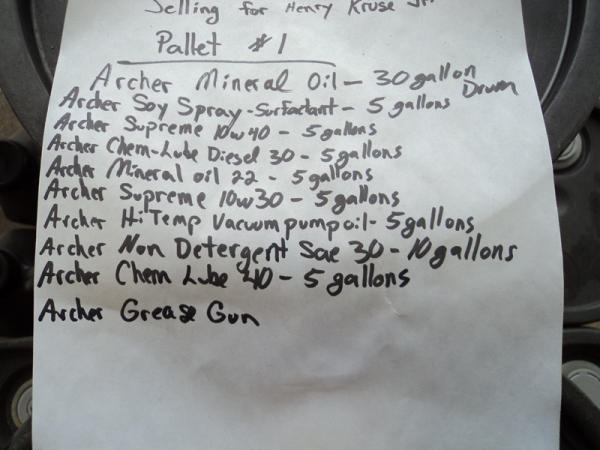 Selling for Henry Kruse Jr.
Pallet #1
Archer Mineral Oil - 30 gallon Drum
Archer Soy Spray - Surfactant - 5 gallons
Archer Supreme 10w40 - 5 gallons
Archer Chem-Lube Diesel 30 - 5 gallons
Archer Mineral oil 22 - 5 gallons
Archer Supreme 10w30 - 5 gallons
Archer Hi Temp Vacuum pump oil - 5 gallons
Archer Non Detergent Sae 30 - 10 gallons
Archer Chem Lube 40 - 5 gallons
Archer Grease Gun